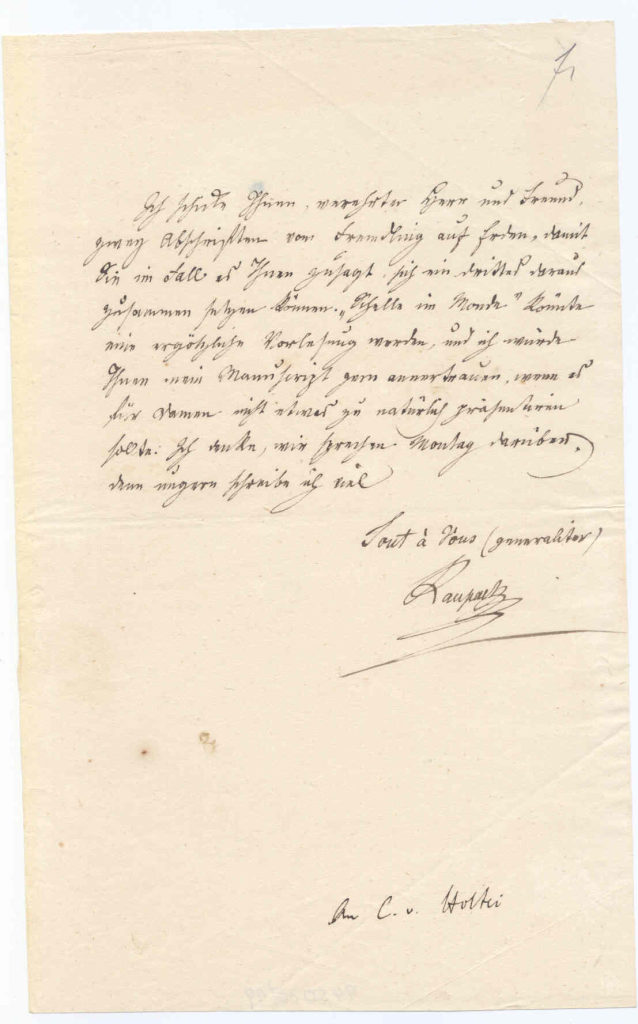 7,
Ich schicke Ihnen, verehrter Herr und Freund,
zwey Abschriften vom Fremdling auf Erden, damit
Sie im Fall es Ihnen zusagt, sich ein drittes daraus
zusammen setzen können. „Schelle im Monde“ könnte
eine ergötzliche Vorlesung werden, und ich würde
Ihnen mein Manuscript gern anvertrauen, wenn es
für Damen nicht etwas zu natürlich präsentiren
sollte. Ich denke, wir sprechen Montag darüber,
denn ungern schreibe ich viel
Tout à Vous (generaliter)
Raupach
An C. v. Holtei